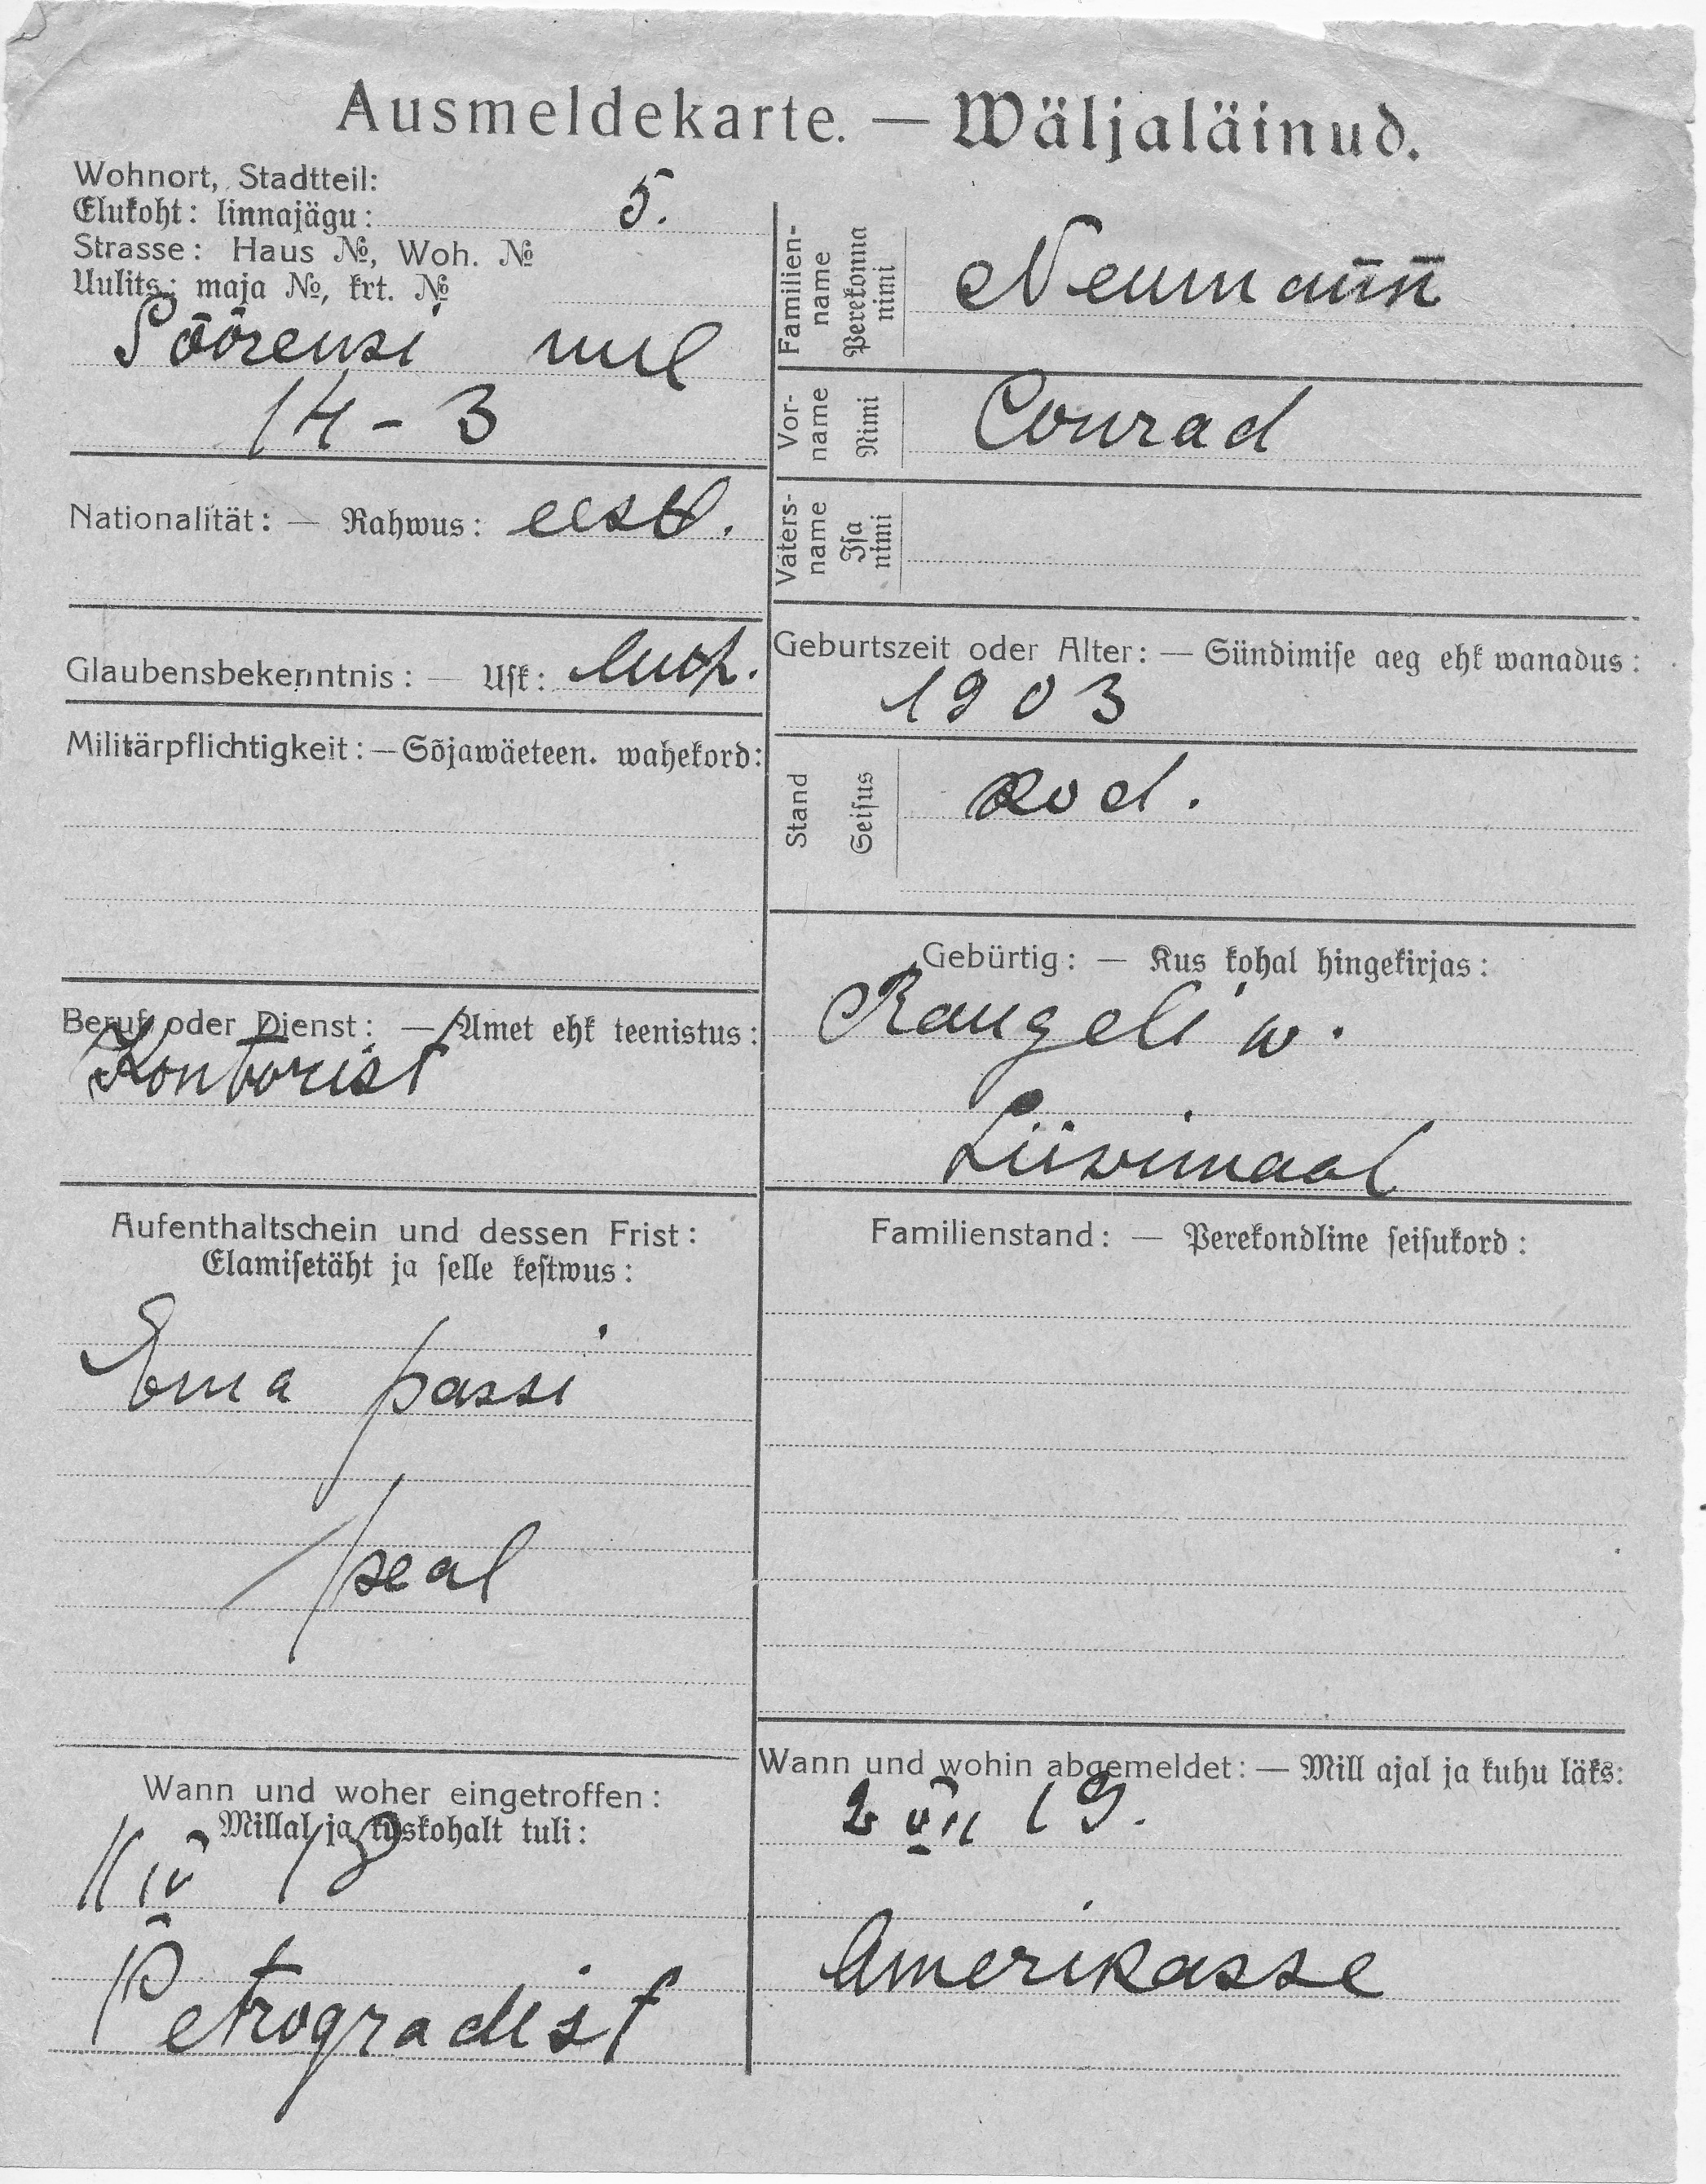 Ausmeldekarte. — Wäljaläinud.
Wohnort, Stadtteil:
Elukoht: linnajägu: 5.
Strasse: Haus №, Woh. №
Uulits: maja №, krt. №
Söörensi uul
14 - 3
Nationalität: — Rahwus: eestl.
Glaubensbekenntnis: — Usk: luth.
Militärpflichtigkeit: — Sõjawäeteen. wahekord:
Beruf oder Dienst: — Amet ehk teenistus:
Kontorist
Aufenthaltschein und dessen Frist:
Elamisetäht ja selle kestwus:
Ema passi
peal
Wann und woher eingetroffen:
Millal ja kuskohalt tuli:
11 IV 18
Petrogradist
Familien-
name
Perekonna
nimi
Neumann
Vor-
name
Nimi
Conrad
Vaters-
name
Isa
nimi
Geburtszeit oder Alter: — Sündimise aeg ehk wanadus:
1903
Stand
Seisus
kod.
Gebürtig: — Kus kohal hingekirjas:
Raugeli w.
Liiwimaal
Familienstand: — Perekondline seisukord:
Wann und wohin abgemeldet: — Mill ajal ja kuhu läks:
2 VII 19.
Amerikasse